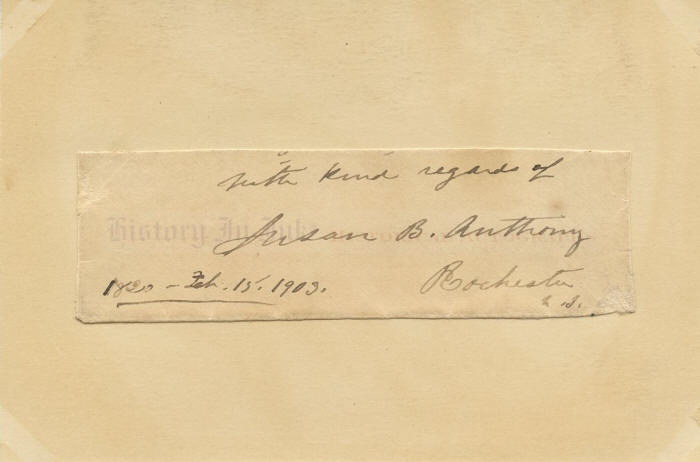 with kind regards of
History In Ink
Susan B. Anthony
1820 - Feb. 15. 1903.
Rochester